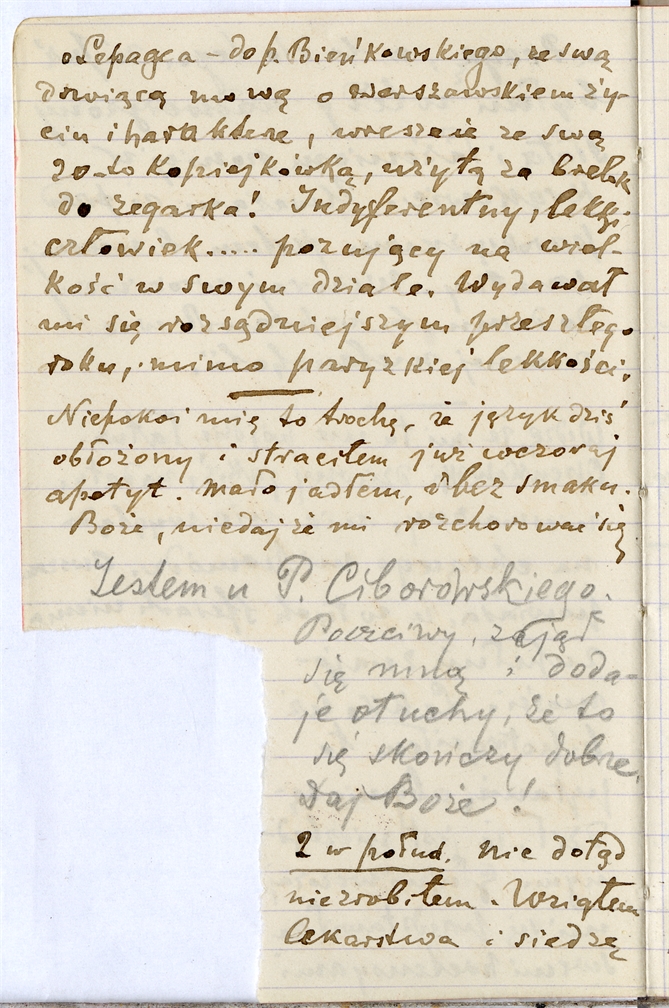 o Lepage'a – do p. Bieńkowskiego, ze swą
drwiącą mową o warszawskiem ży-
ciu iharakterze, wreszcie ze swą
20-to kopiejkówką, użytą za brelok
do zegarka! Indyferentny, lekki
człowiek..... pozujący na wiel-
kość w swym dziale. Wydawał
mi się rozsądniejszym przeszłego
roku, mimo paryzkiej lekkości.
Niepokoi mię to trochę, że język dziś
obłożony i straciłem już wczoraj
apetyt. Mało jadłem, i bez smaku.
Boże, niedajże mi rozchorować się
Jestem u P. Ciborowskiego.
Poczciwy, zajął
się mną i doda-
je otuchy, że to
się skończy dobrze.
Daj Boże!
2 w połud. Nic dotąd
niezrobiłem. Wziąłem
lekarstwa i siedzę